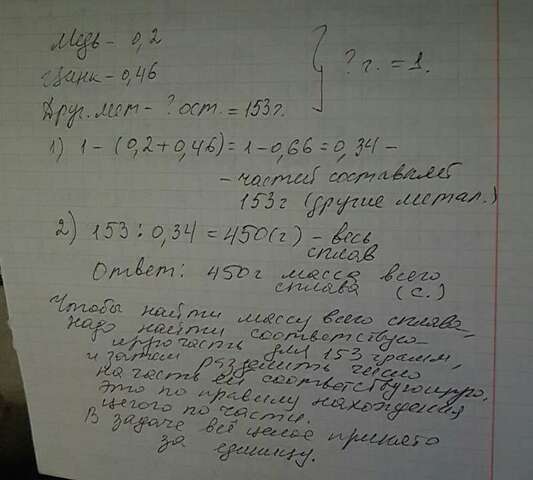 Медь - 0,2
Цинк - 0,46
? г. = 1.
Друг. мет - ? ост. = 153 г.
1) 1 - (0,2 + 0,46) = 1 - 0,66 = 0,34 -
- частей составляет
153 г (другие метал.)
2) 153 : 0,34 = 450 (г) - весь
сплав
Ответ: 450 г масса всего
сплава (с.)
Чтобы найти массу всего сплава,
надо найти соответствую-
щую часть для 153 грамм,
и затем разделить число
на часть ей соответствующую.
Это по правилу нахождения
целого по части.
В задаче всё целое принято
за единицу.